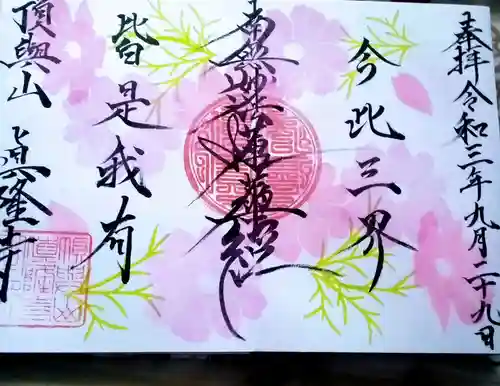 奉拝令和三年九月二十九日
今此三界
南無妙法蓮華経
皆是我有
頂與山
真隆寺